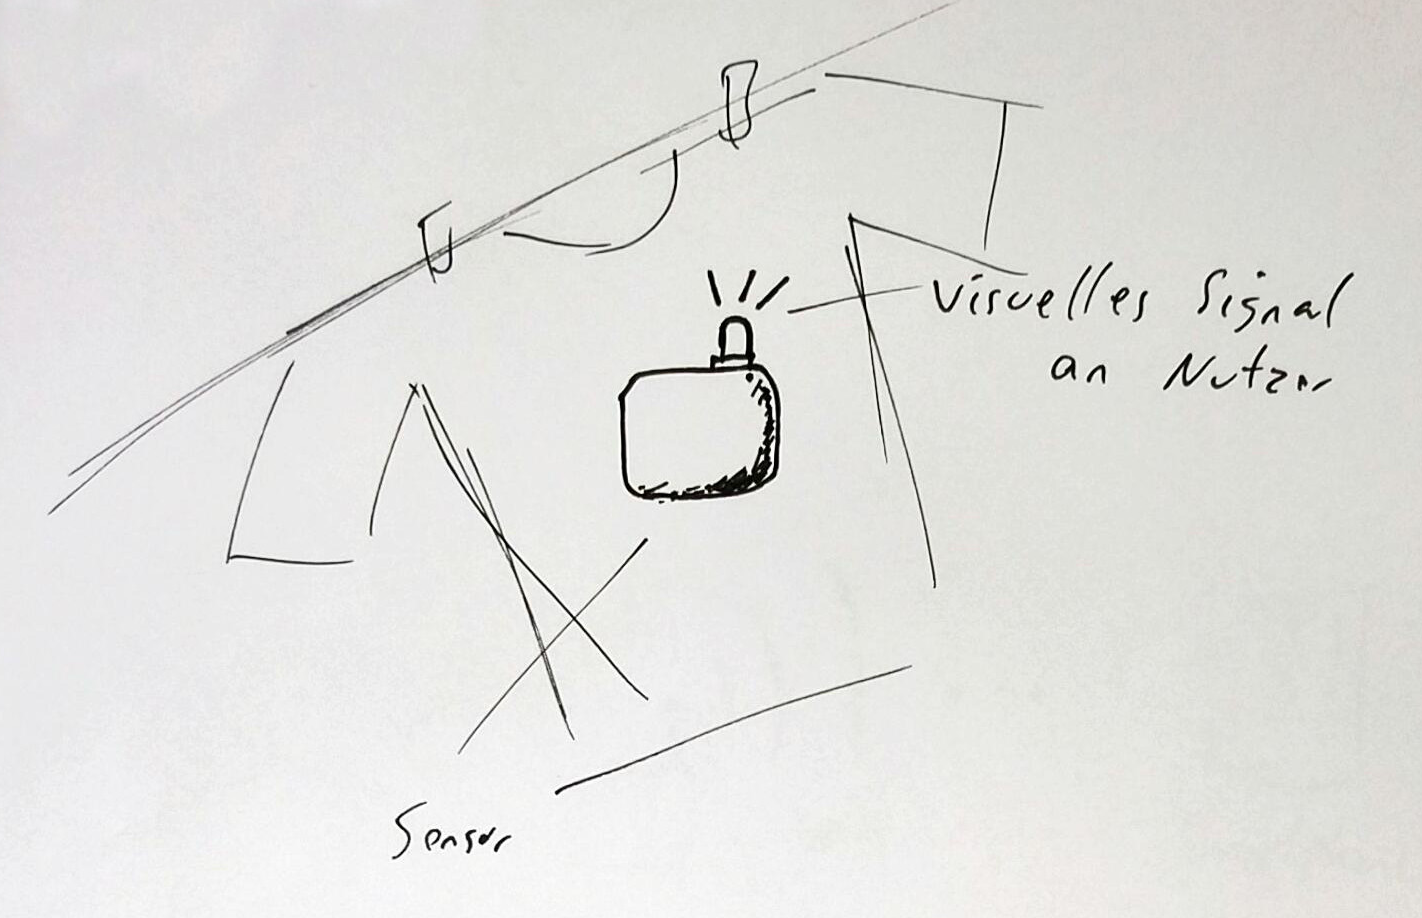 Visuelles Signal
an Nutzer
Sensor